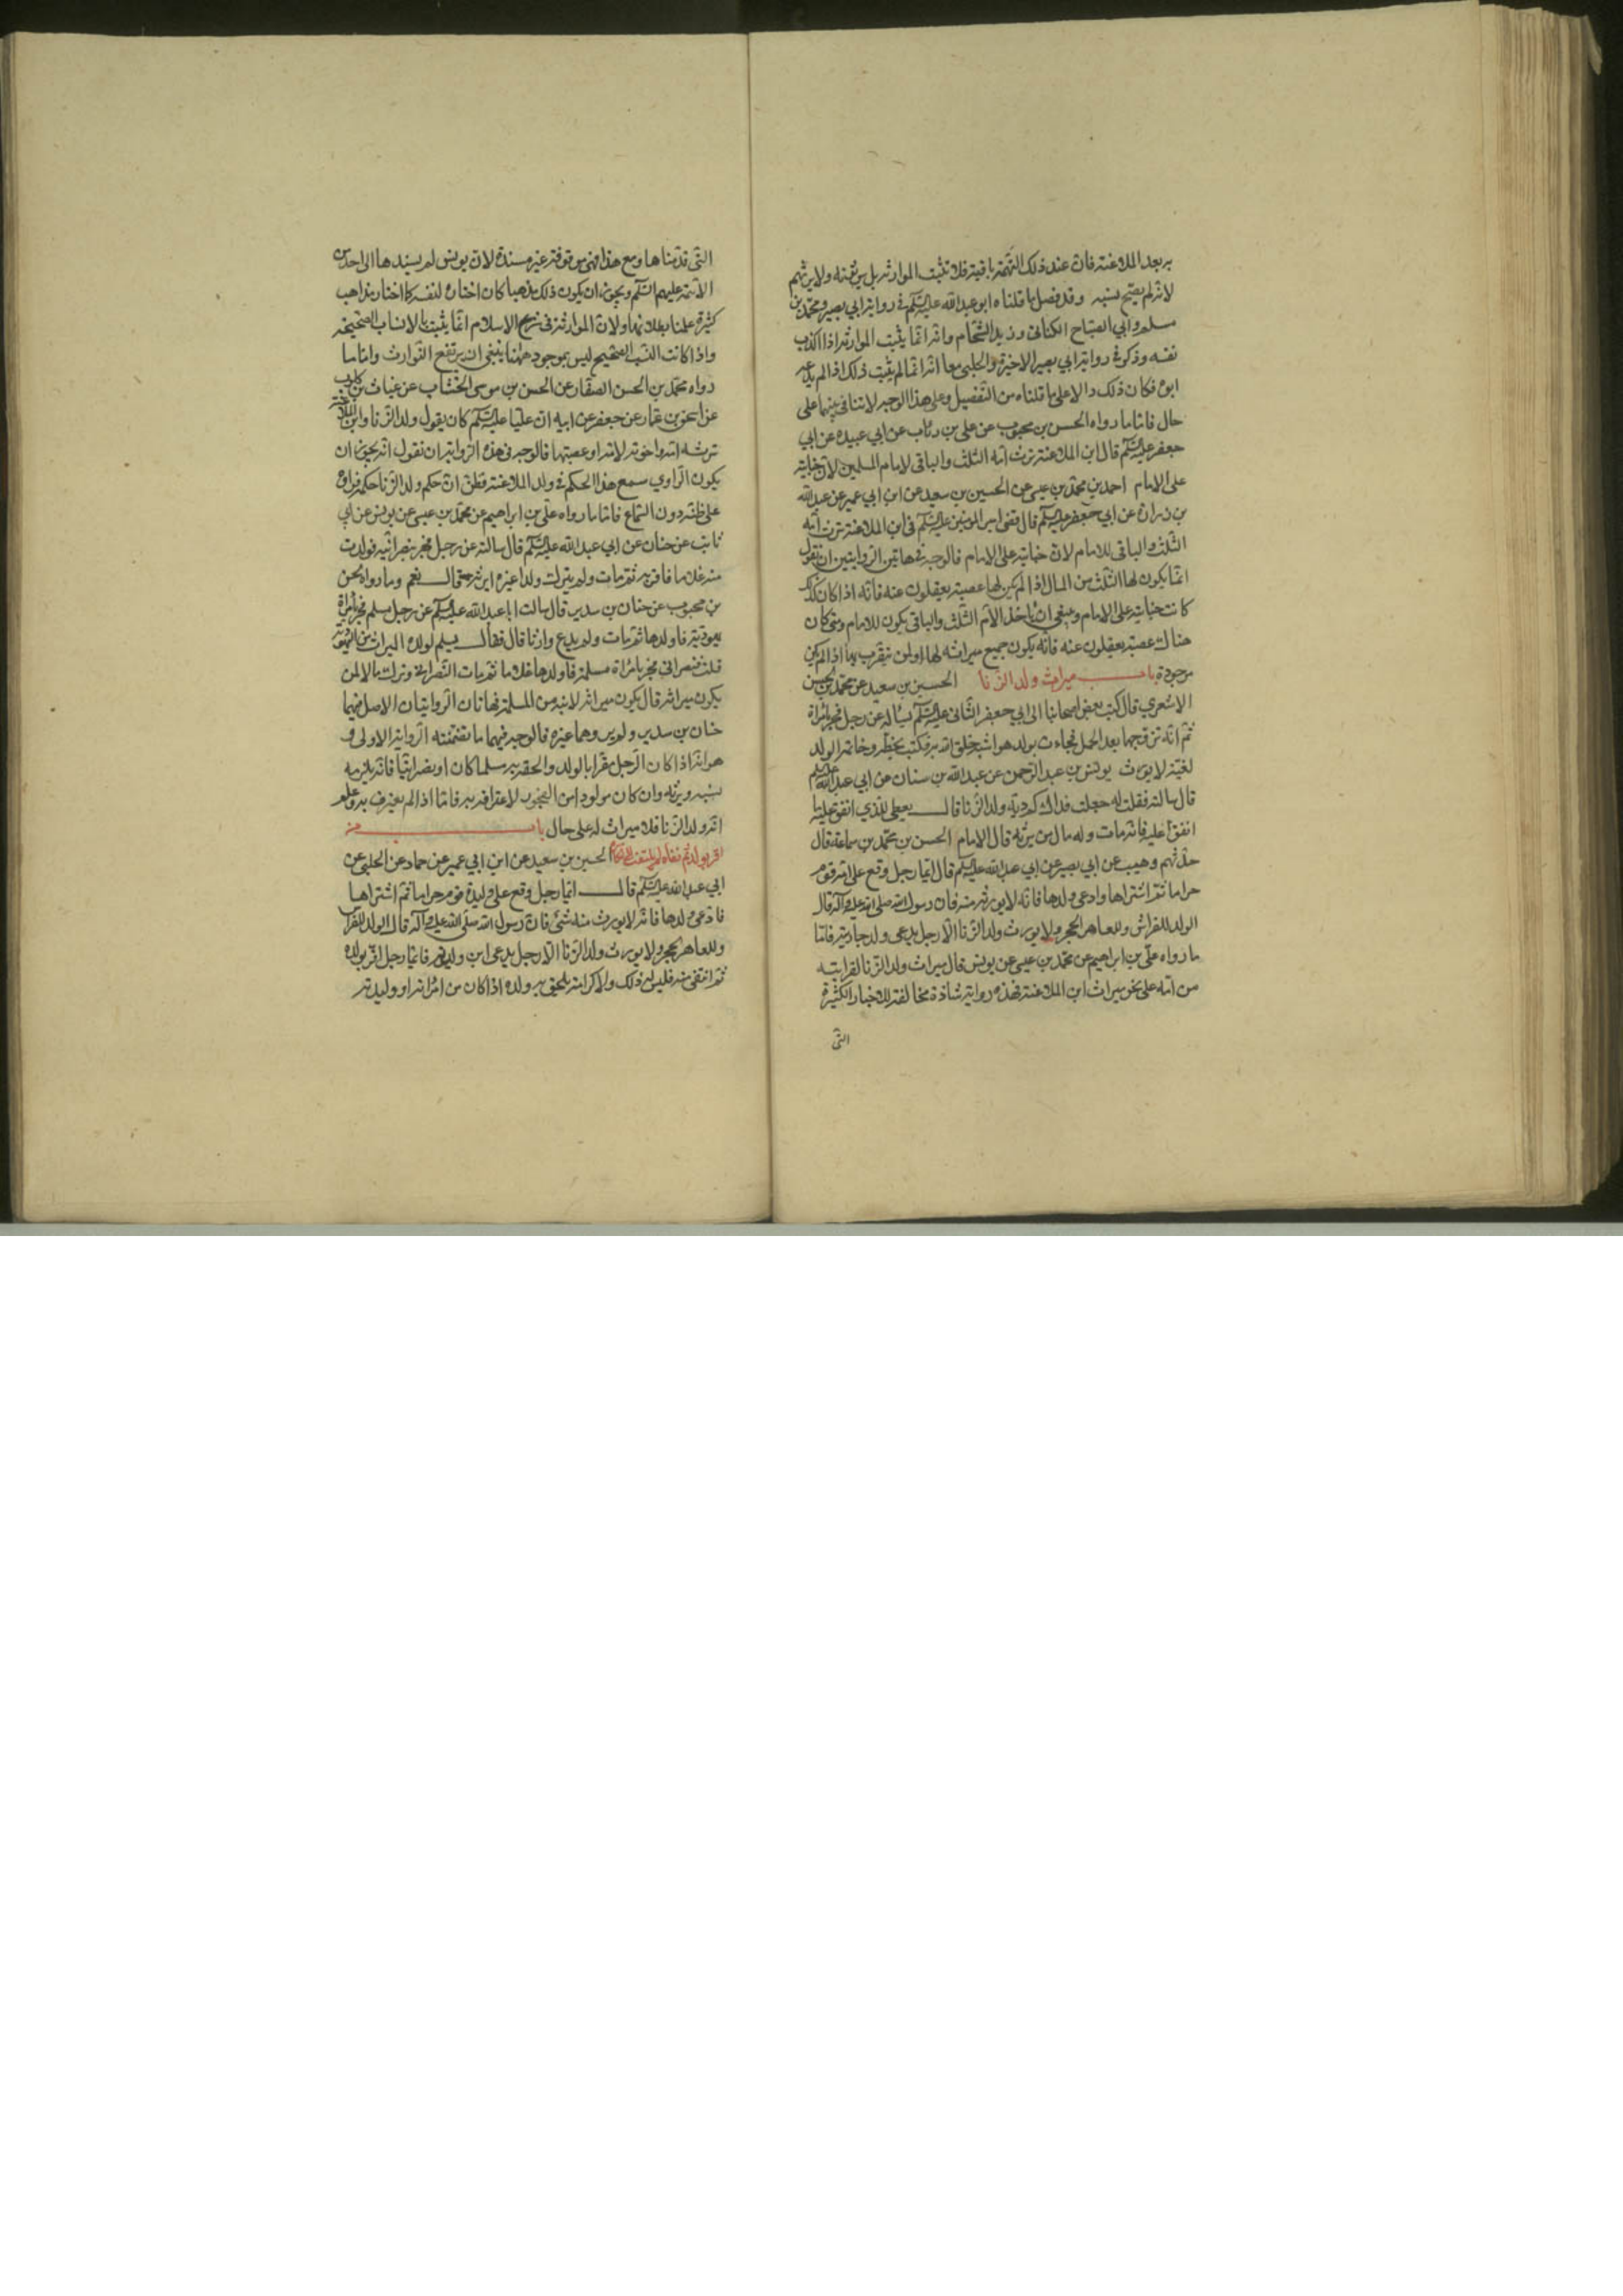 به بعد الملاعنة فان عند ذلك التهمة باقية فلا تثبت الموارثة بل يرثونه ولا يرثهم
لانه لم يصح نسبه وقد فصل ما قلناه ابو عبد الله عليه السلم في رواية ابي بصير ومحمد بن
مسلم وابي الصباح الكناني وزيد الشحام وانه انما يثبت الموارثة اذا اكذب
نفسه وذكر في رواية ابي بصير الاخيرة والحلبي معا انه انما لم يثبت ذلك اذا لم يدعه
ابوه فكان ذلك دالا على ما قلناه من التفصيل وعلى هذا الوجه لا تنافي بينهما على
حال فاما ما رواه الحسن بن محبوب عن علي بن رئاب عن ابي عبيدة عن ابي
جعفر عليه السلم قال ابن الملاعنة ترث امه الثلث والباقي لامام المسلمين لان جنايته
على الامام احمد بن محمد بن عيسى عن الحسين بن سعيد عن ابن ابي عمير عن عبد الله
بن زرارة عن ابي جعفر عليه السلم قال قضى امير المؤمنين عليه السلم في ابن الملاعنة ترث امه
الثلث والباقي للامام لان جنايته على الامام فالوجه في هاتين الروايتين ان نقول
انما يكون لها الثلث من المال اذا لم يكن لها عصبة يعقلون عنه فانه اذا كان كذلك
كانت جنايته على الامام وينبغي ان ياخذ الام الثلث والباقي يكون للامام ومتى كان
هناك عصبة يعقلون عنه فانه يكون جميع ميراثه لها او لمن يتقرب بها اذا لم يكن
موجودة باب ميراث ولد الزنا الحسين بن سعيد عن محمد بن الحسن
الاشعري قال كتب بعض اصحابنا الى ابي جعفر الثاني عليه السلم يساله عن رجل فجر بامراة
ثم انه تزوجها بعد الحمل فجاءت بولد هو اشبه خلق الله به فكتب بخطه وخاتمه الولد
لغية لا يورث يونس بن عبد الرحمن عن عبد الله بن سنان عن ابي عبد الله عليه السلم
قال سالته فقلت له جعلت فداك كم دية ولد الزنا قال يعطى للذي انفق عليه ما
انفق عليه فانه مات وله مال من يرثه قال الامام الحسن بن محمد بن سماعة قال
حدثهم وهيب عن ابي بصير عن ابي عبد الله عليه السلم قال ايما رجل وقع على امة قوم
حراما ثم اشتراها وادعى ولدها فانه لا يورث منه فان رسول الله صلى الله عليه وآله قال
الولد للفراش وللعاهر الحجر ولا يورث ولد الزنا الا رجل يدعي ولد جاريته فاما
ما رواه علي بن ابراهيم عن محمد بن عيسى عن يونس قال ميراث ولد الزنا لقرابته
من امه على نحو ميراث ابن الملاعنة فهذه رواية شاذة مخالفة للاخبار الكثيرة
التي
التي قدمناها ومع هذا فهي موقوفة غير مسندة لان يونس لم يسندها الى احد من
الائمة عليهم السلم ويجوز ان يكون ذلك مذهبا كان اختاره لنفسه كما اختار مذاهب
كثيرة علمنا بطلانها ولان الموارثة في شرع الاسلام انما يثبت بالانساب الصحيحة
واذا كانت النسب الصحيح ليس بموجود ههنا ينبغي ان يرتفع التوارث واما ما
رواه محمد بن الحسن الصفار عن الحسن بن موسى الخشاب عن غياث بن كلوب
عن اسحق بن عمار عن جعفر عن ابيه ان عليا عليه السلم كان يقول ولد الزنا وابن الملاعنة
ترثه امه واخوته لامه او عصبتها فالوجه في هذه الرواية ان نقول انه يجوز ان
يكون الراوي سمع هذا الحكم في ولد الملاعنة فظن ان حكم ولد الزنا حكمه فرواه
على ظنه دون السماع فاما ما رواه علي بن ابراهيم عن محمد بن عيسى عن يونس عن ابي
ثابت عن حنان عن ابي عبد الله عليه السلم قال سالته عن رجل فجر بنصرانية فولدت
منه غلاما فاقر به ثم مات ولم يترك ولدا غيره ايرثه قال نعم وما رواه الحسن
بن محبوب عن حنان بن سدير قال سالت ابا عبد الله عليه السلم عن رجل مسلم فجر بامراة
يهودية فاولدها ثم مات ولم يدع وارثا قال فقال يسلم لولده الميراث من اليهودية
قلت فنصراني فجر بامراة مسلمة فاولدها غلاما ثم مات النصراني وترك مالا لمن
يكون ميراثه قال يكون ميراثه لابنه من المسلمة فهاتان الروايتان الاصل فيهما
حنان بن سدير ولم يروهما غيره فالوجه فيهما ما تضمنته الرواية الاولى و
هو انه اذا كان الرجل مقرا بالولد والحقه به مسلما كان او نصرانيا فانه يلزمه
نسبه ويرثه وان كان مولودا من الفجور لاعترافه به فاما اذا لم يعترف به وعلم
انه ولد الزنا فلا ميراث له على حال باب من
اقر بولد ثم نفاه لم يلتفت الى انكاره الحسين بن سعيد عن ابن ابي عمير عن حماد عن الحلبي عن
ابي عبد الله عليه السلم قال ايما رجل وقع على وليدة قوم حراما ثم اشتراها
فادعى ولدها فانه لا يورث منه شئ فان رسول الله صلى الله عليه وآله قال الولد للفراش
وللعاهر الحجر ولا يورث ولد الزنا الا رجل يدعي ابن وليدته فايما رجل اقر بولده
ثم انتفى منه فليس له ذلك ولا كرامة يلحق به ولده اذا كان من امراته او وليدته